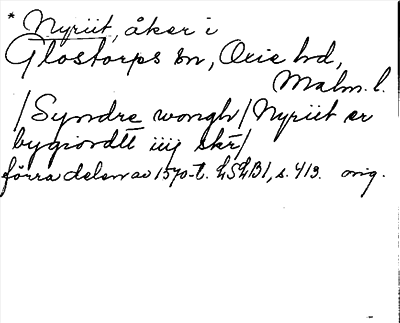 * Nyriit, åker i
Glostorps sn, Oxie hd,
Malm. l.
/Syndre wongh/Nyriit er
bygiordtt iiij skr/
förra delen av 1570-t. LSLB1, s. 413. orig.